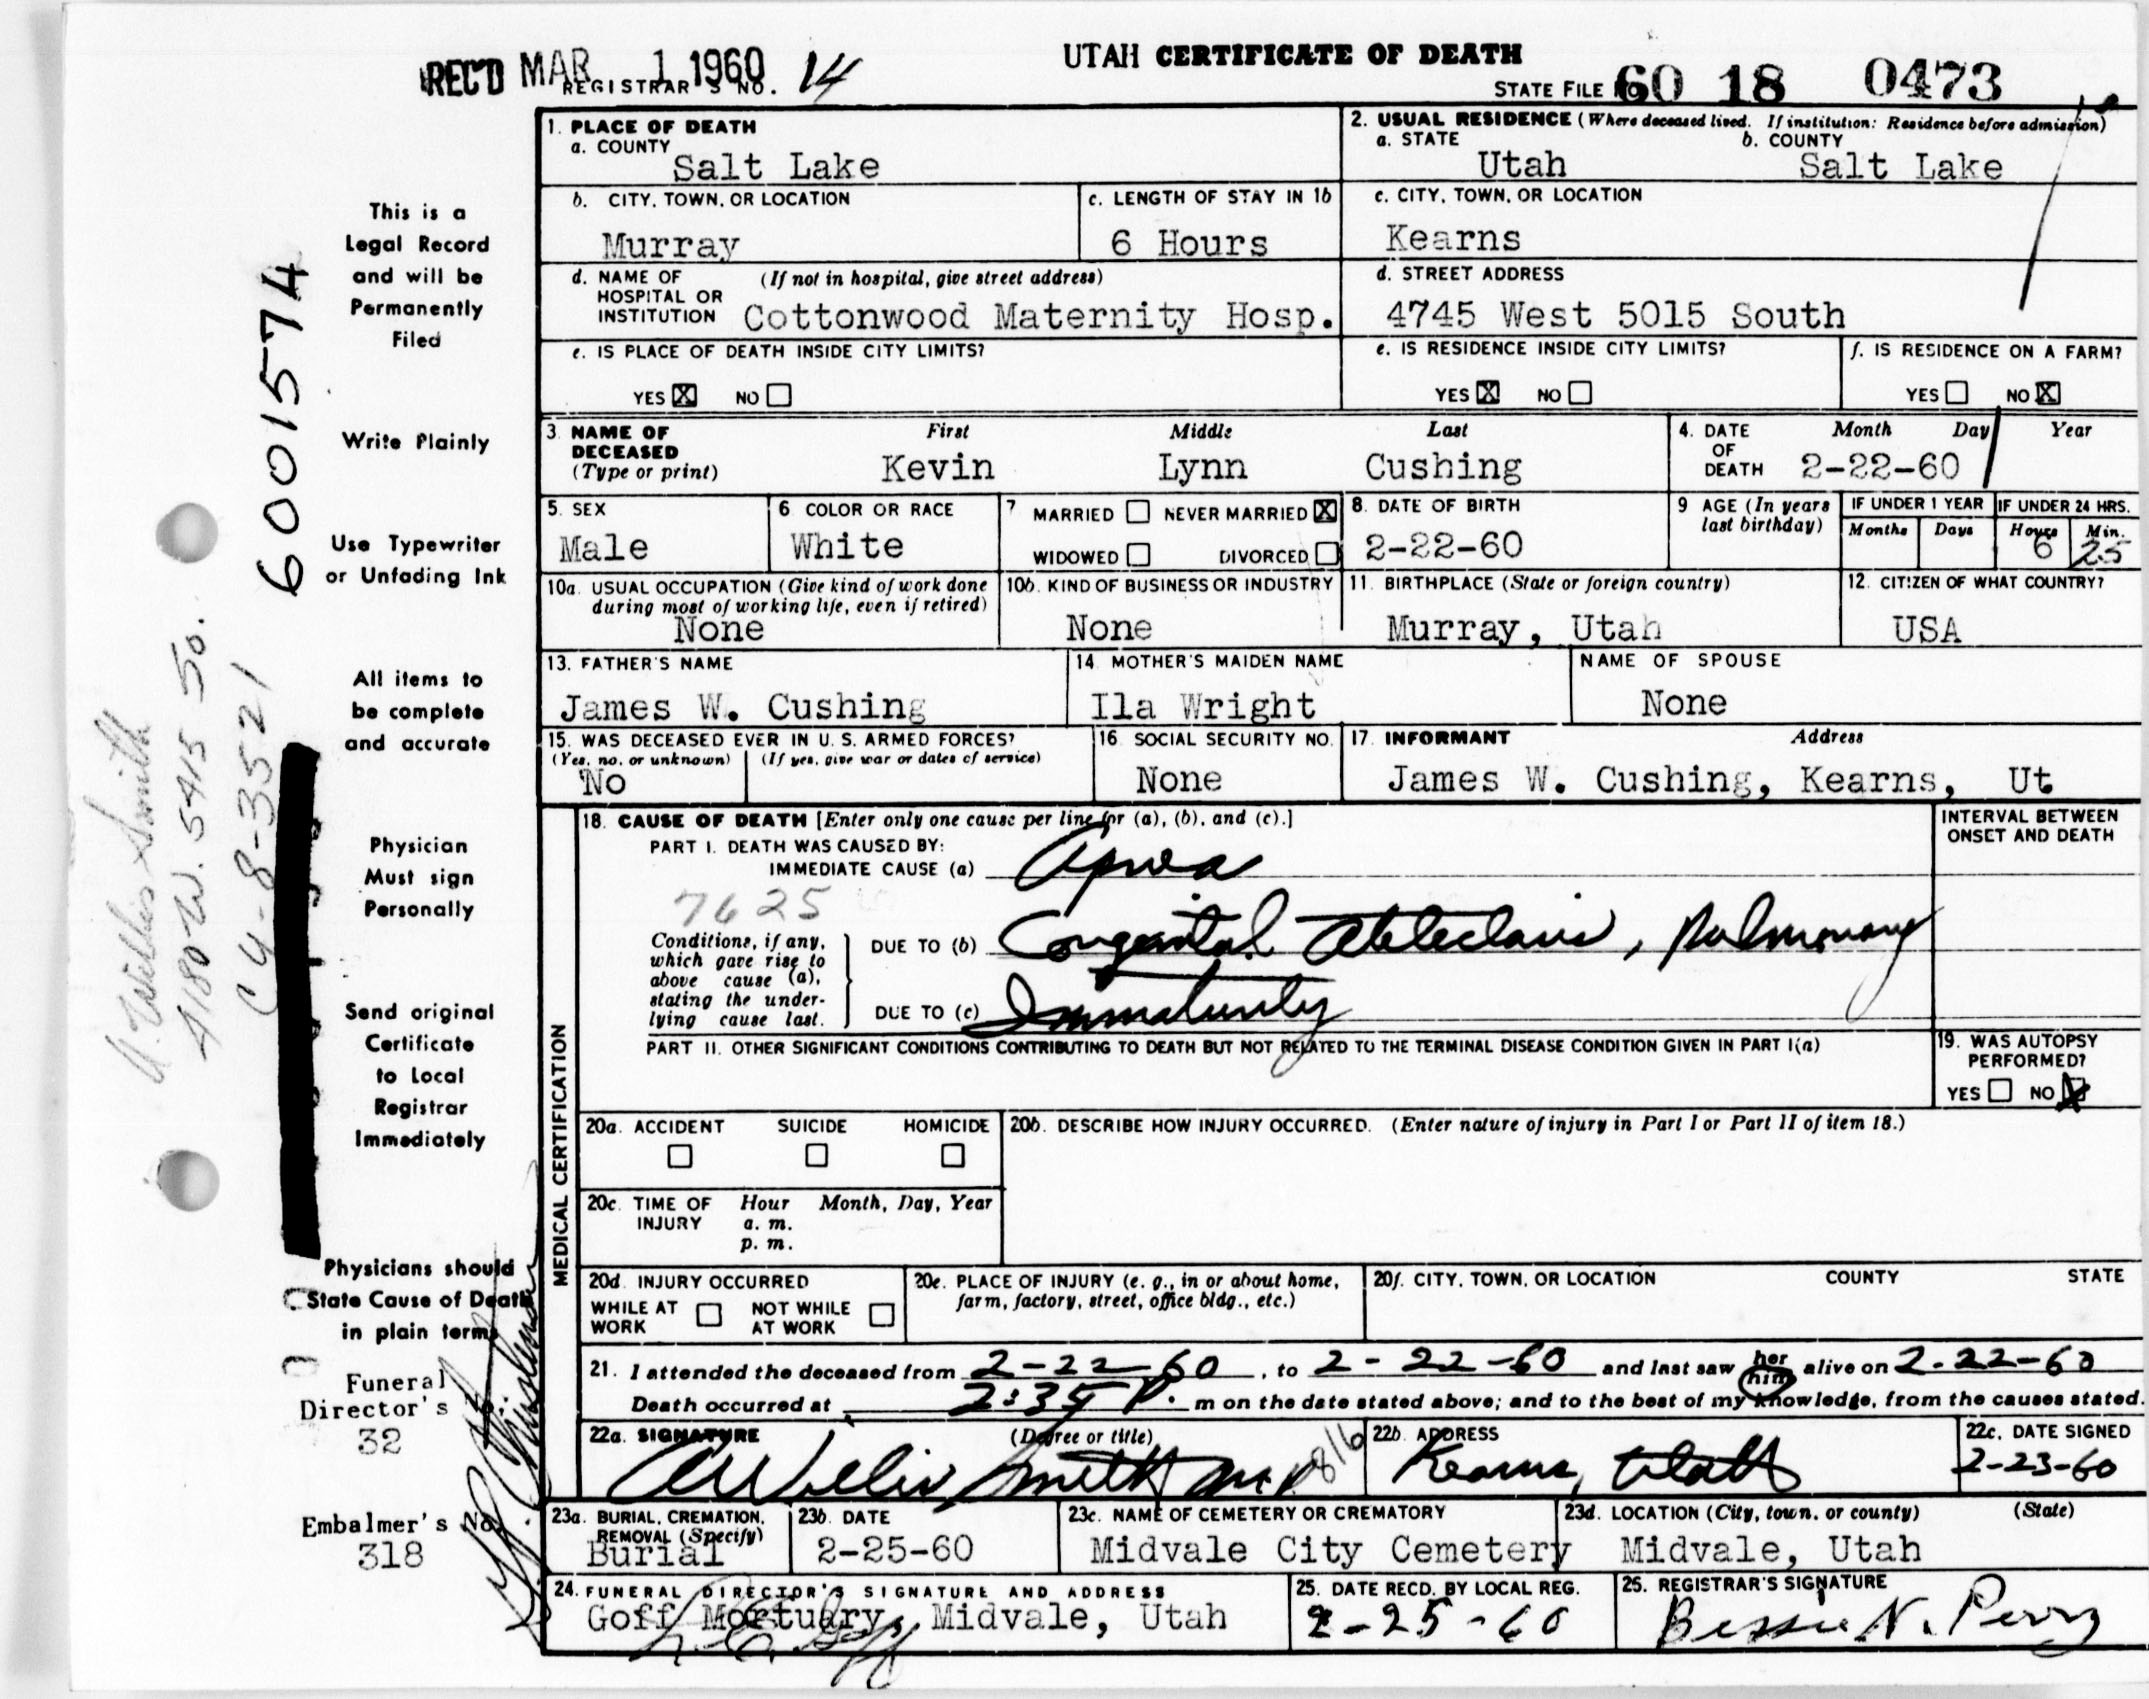 REC'D MAR 1 1960
REGISTRAR'S NO. 14
UTAH CERTIFICATE OF DEATH
STATE FILE 60 18 0473
1. PLACE OF DEATH
a. COUNTY
Salt Lake
2. USUAL RESIDENCE (Where deceased lived. If institution: Residence before admission)
a. STATE b. COUNTY
Utah Salt Lake
b. CITY, TOWN, OR LOCATION
Murray
c. LENGTH OF STAY IN 1b
6 Hours
c. CITY, TOWN, OR LOCATION
Kearns
d. NAME OF HOSPITAL OR INSTITUTION (If not in hospital, give street address)
Cottonwood Maternity Hosp.
d. STREET ADDRESS
4745 West 5015 South
e. IS PLACE OF DEATH INSIDE CITY LIMITS?
YES X NO
e. IS RESIDENCE INSIDE CITY LIMITS?
YES X NO
f. IS RESIDENCE ON A FARM?
YES NO X
3. NAME OF DECEASED (Type or print)
First Middle Last
Kevin Lynn Cushing
4. DATE OF DEATH
Month Day Year
2-22-60
5. SEX
Male
6. COLOR OR RACE
White
7 MARRIED NEVER MARRIED X
WIDOWED DIVORCED
8. DATE OF BIRTH
2-22-60
9 AGE (In years last birthday)
IF UNDER 1 YEAR
Months Days
IF UNDER 24 HRS.
Hours Min.
6 25
10a. USUAL OCCUPATION (Give kind of work done during most of working life, even if retired)
None
10b. KIND OF BUSINESS OR INDUSTRY
None
11. BIRTHPLACE (State or foreign country)
Murray, Utah
12. CITIZEN OF WHAT COUNTRY?
USA
13. FATHER'S NAME
James W. Cushing
14. MOTHER'S MAIDEN NAME
Ila Wright
NAME OF SPOUSE
None
15. WAS DECEASED EVER IN U. S. ARMED FORCES?
(Yes, no, or unknown) (If yes, give war or dates of service)
No
16. SOCIAL SECURITY NO.
None
17. INFORMANT Address
James W. Cushing, Kearns, Ut
MEDICAL CERTIFICATION
18. CAUSE OF DEATH [Enter only one cause per line for (a), (b), and (c).]
INTERVAL BETWEEN ONSET AND DEATH
PART I. DEATH WAS CAUSED BY:
IMMEDIATE CAUSE (a) Apnea
7625
Conditions, if any, which gave rise to above cause (a), stating the underlying cause last.
DUE TO (b) Congenital Atelectasis, Pulmonary
DUE TO (c) Immaturity
PART II. OTHER SIGNIFICANT CONDITIONS CONTRIBUTING TO DEATH BUT NOT RELATED TO THE TERMINAL DISEASE CONDITION GIVEN IN PART I(a)
19. WAS AUTOPSY PERFORMED?
YES NO X
20a. ACCIDENT SUICIDE HOMICIDE
20b. DESCRIBE HOW INJURY OCCURRED. (Enter nature of injury in Part I or Part II of item 18.)
20c. TIME OF INJURY Hour Month, Day, Year
a. m.
p. m.
20d. INJURY OCCURRED
WHILE AT WORK NOT WHILE AT WORK
20e. PLACE OF INJURY (e. g., in or about home, farm, factory, street, office bldg., etc.)
20f. CITY, TOWN, OR LOCATION COUNTY STATE
21. I attended the deceased from 2-22-60, to 2-22-60 and last saw her him alive on 2-22-60
Death occurred at 2:35 P. m on the date stated above; and to the best of my knowledge, from the causes stated.
22a. SIGNATURE (Degree or title)
A Willis Smith M.D. 816
22b. ADDRESS
Kearns, Utah
22c. DATE SIGNED
2-23-60
23a. BURIAL, CREMATION, REMOVAL (Specify)
Burial
23b. DATE
2-25-60
23c. NAME OF CEMETERY OR CREMATORY
Midvale City Cemetery
23d. LOCATION (City, town, or county) (State)
Midvale, Utah
24. FUNERAL DIRECTOR'S SIGNATURE AND ADDRESS
Goff Mortuary, Midvale, Utah
25. DATE RECD. BY LOCAL REG.
2-25-60
25. REGISTRAR'S SIGNATURE
Bessie N. Perry
This is a
Legal Record
and will be
Permanently
Filed
Write Plainly
Use Typewriter
or Unfading Ink
All items to
be complete
and accurate
Physician
Must sign
Personally
Send original
Certificate
to Local
Registrar
Immediately
Physicians should
State Cause of Death
in plain terms
Funeral
Director's No.
32
Embalmer's No.
318
6001574
A. Willis Smith
4180 W. 5415 So.
CY-8-3521